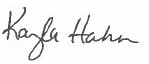 Kayla Hahn